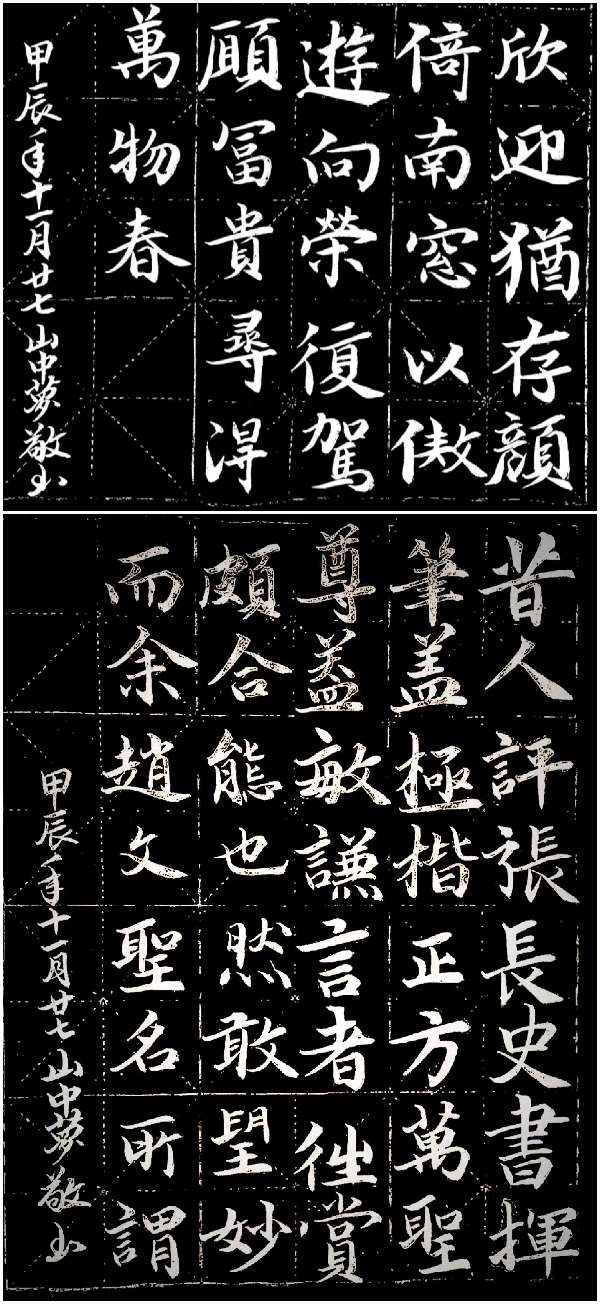 欣迎猶存顔
倚南窓以傲
遊向榮復駕
願富貴尋得
萬物春
甲辰年十一月廿七山中夢敬书
昔人評張長史書揮
筆盖極楷正方萬聖
尊益敏謙言者徃賞
頗合能也然敢望妙
而余趙文聖名所謂
甲辰年十一月廿七山中夢敬书